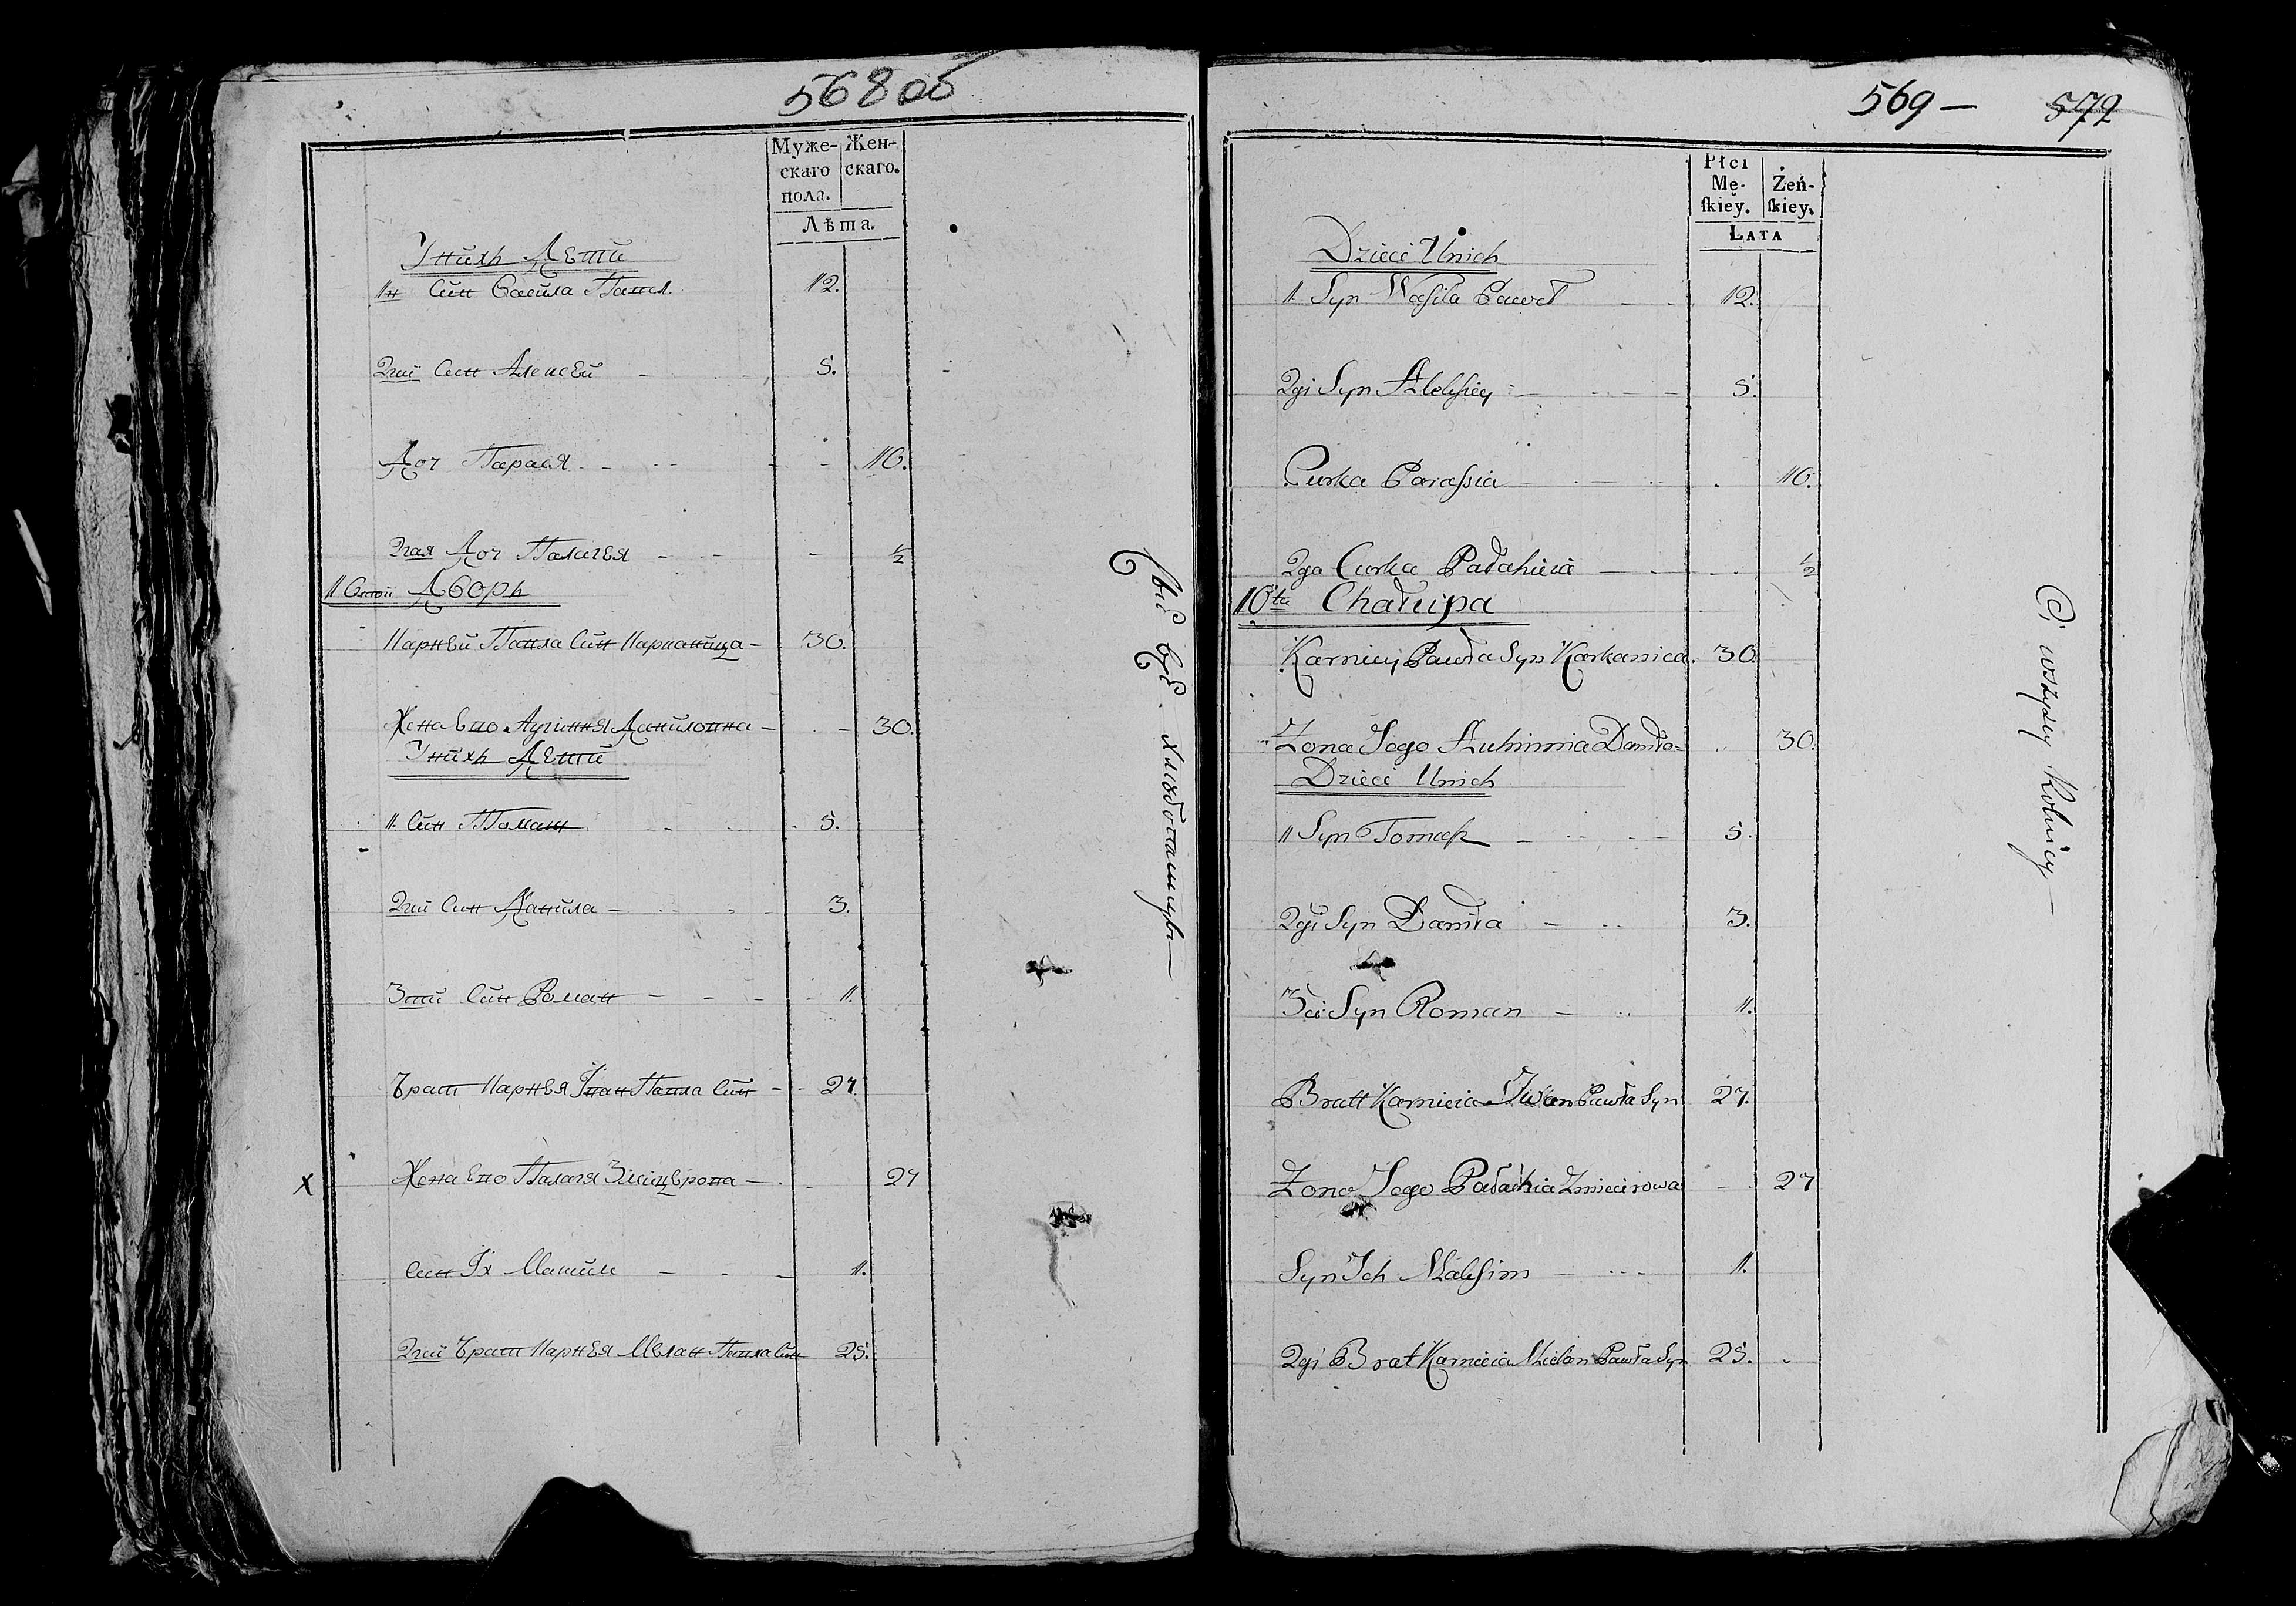 568 об
Муже-
скаго
пола.
Жен-
скаго.
Лѣта.
Унихъ Дети
1й Син Васила Павел. 12.
2гий Син Алексей 5.
Доч Парася 10.
2гая Доч Палагея ½
10тый Дворъ
Карней Павла Син Карканица 30.
Жена Его Аугиння Данилова 30.
Унихъ Дети
1. Син Томаш 5.
2гий Син Данила 3.
3тий Син Роман 1.
Брат Карнея Іван Павла Син 27.
Жена Его Палагя Змицерова 27
Син Іх Максим 1.
2гий Брат Карнея Мелан Павла Син 25.
хлебопашцы
569 — 572
Płci
Mę-
ſkiey.
Żeń-
ſkiey.
LATA
Dzieci Unich
1. Syn Waſila Paweł 12.
2gi Syn Alekſiey 5.
Curka Paraſsia 10.
2ga Curka Pałahieia ½
10ta Chałupa
Karniey Pawła Syn Karkanica 30.
Zona Jego Auhinnia Daniło= 30.
Dzieci Unich
1 Syn Tomaſz 5.
2gi Syn Daniła 3.
3ci Syn Roman 1.
Bratt Karnieia Iwan Pawła Syn 27.
Zona Jego Pałachia Zmicierowa 27
Syn Ich Makſim 1.
2gi Brat Karnieia Mielan Pawła Syn 25.
Ci wszyscy Rolnicy —